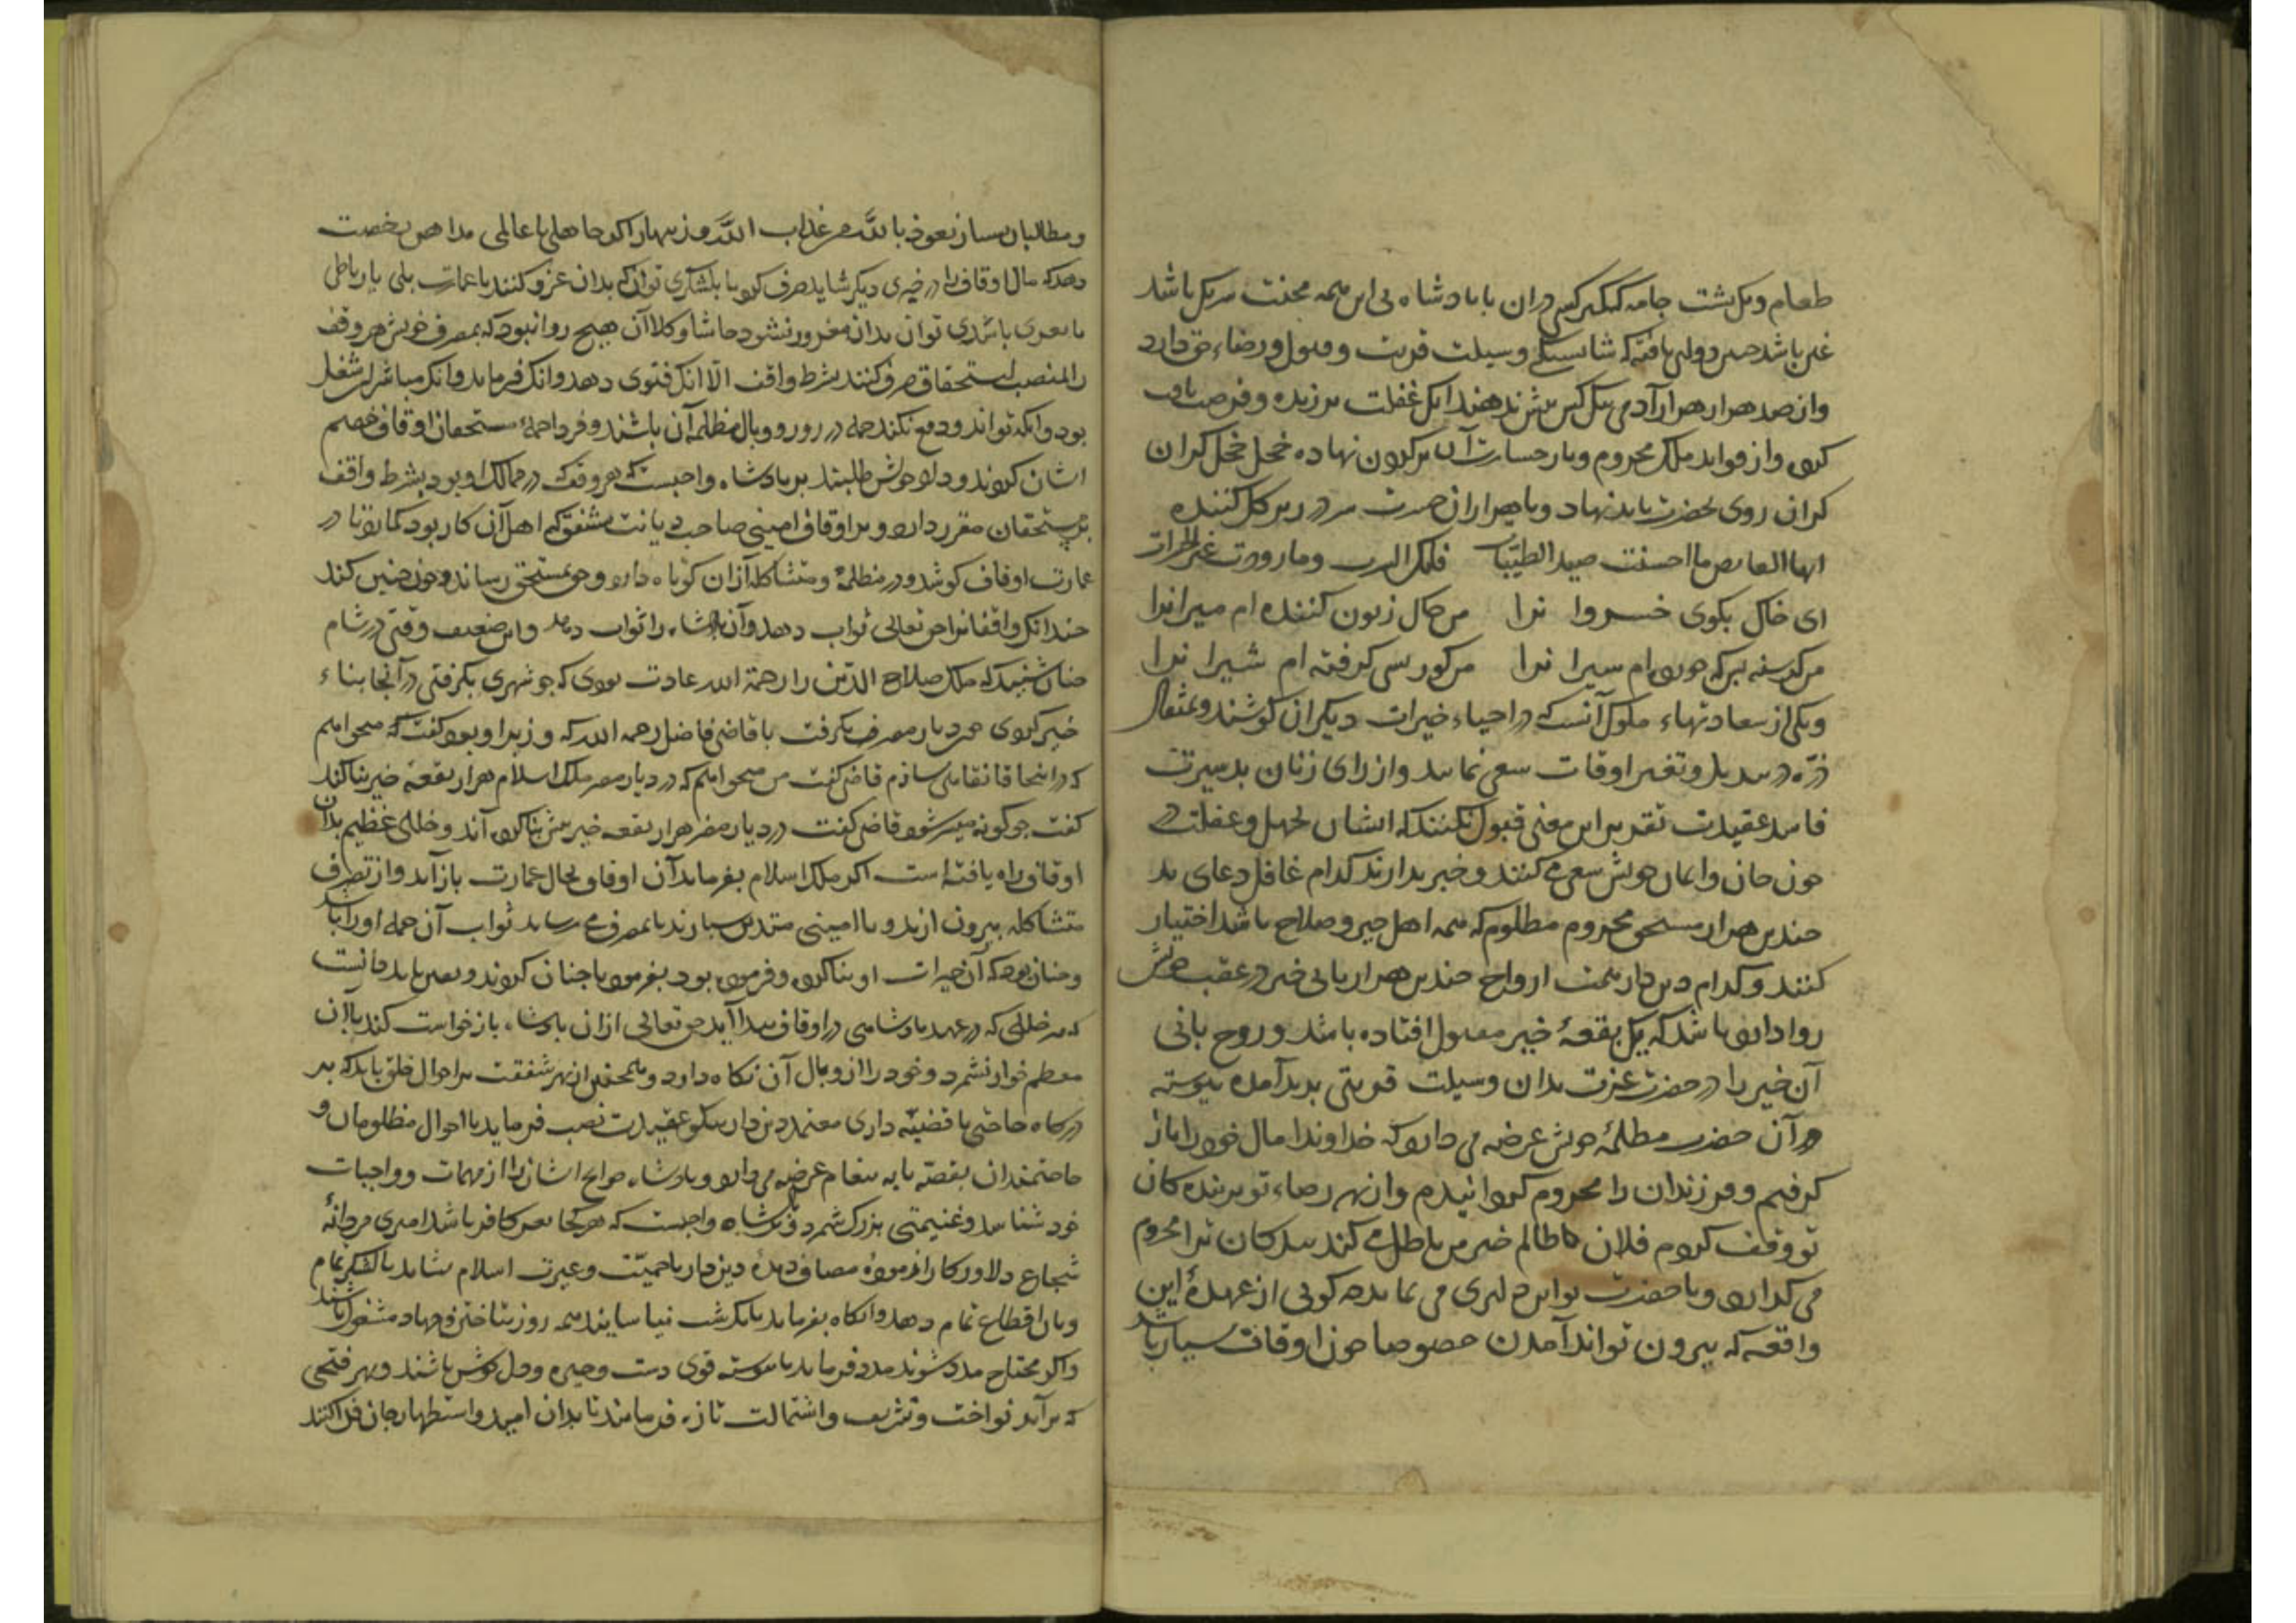 طعام و یک پشت جامه کیکبر کس دران با بادشاه بی این همه محنت شریک باشد
غبن باشد چنین دولتی یافته که شایستگی وسیلت قربت و قبول و رضاء حق دارد
و از صد هزار هزار آدمی بیک کس بیش ندهند انکل غفلت برزیده و فرصت یافت
کرده و از فواید ملک محروم و بار خسارت آن بر گردن نهاده خجل خجل کران
کران روی بحضرت باید نهاد و با هزاران حسرت سر در زیر کل کننده
ایها القانص ما احسنت صید الظبیات فاتک السرب وما زودت غیر الحسرات
ای خاک بکوی خسروا نرا من حال زبون کننده ام میرانرا
من کرسنه بین که خورده ام سیرا نرا من کور بسی کرفته ام شیرا نرا
و یکی از سعادتهاء ملوک آنست که در احیاء خیرات دیکران کوشند و بمثقال
ذره در تبدیل و تغییر اوقات سعی نمایند و از رای زنان بد سیرت
فاسد عقیدت تقریر این معنی قبول نکنند که ایشان بجهل و غفلت در
خون جان و ایمان خویش سعی می کنند و خبر ندارند کدام غافل دعای بد
چندین هزار مستحق محروم مظلوم که همه اهل خیر و صلاح باشد اختیار
کنند و کدام دین دار همت ارواح چندین هزار بانی خیر در عقب خویش
روا دارد باشد که یک بقعهٔ خیر مقبول افتاده باشد و روح بانی
آن خیر را در حضرت عزت بدان وسیلت قربتی پدید آمده پیوسته
در آن حضرت مظلمهٔ خویش عرضه می دارد که خداوندا مال خود را باز
کرفتم و فرزندان را محروم کردانیدم و از بهر رضاء تو بر بنده کان
تو وقف کردم فلان ظالم خیر من باطل می کند بندکان ترا محروم
می کذارد و با حضرت تو این دلیری می نماید چه کویی از عهدهٔ این
واقعه که بیرون تواند آمدن خصوصا چون اوقات بسیار باشد
و مطالبان بسیار نعوذ بالله من عذاب الله و زنهارا اکر جاهلی یا عالمی مداهن رخصت
دهد که مال اوقاف را در خیری دیکر شاید صرف کرد یا بلشکری توان که بدان غزو کنند یا عمارت پلی یا رباطی
یا ثغری یا سدی توان بدان مغرور نشود حاشا و کلا آن هیچ روا نبود که بمصرف خویش هر وقف
را بمنصب استحقاق صرف کنند بشرط واقف الا انک فتوی دهد و انک فرماید و انک مباشر این شغل
بود و انک تواند و دفع نکند جمله در زور و وبال مظلمه آن باشند و فردا جملهٔ مستحقان اوقاف خصم
ایشان کردند و داد خویش طلبند بر پادشاه واجبست که هر وقف که در ممالک او بود بشرط واقف
بر مستحقان مقرر دارد و بر اوقاف امینی صاحب دیانت مشفق که اهل آن کار بود کمارد تا در
عمارت اوقاف کوشد و در مظلمهٔ و متشاکله ازان کوتاه دارد و حق بمستحق رساند و چون چنین کند
چندانک واقفانرا حق تعالی ثواب دهد و آن پادشاه را ثواب دهد و این ضعیف وقتی در شام
چنان شنید که ملک صلاح الدین را رحمة الله عادت بودی که چو شهری بکرفتی در آنجا بناء
خیر کردی چون دیار مصر بکرفت با قاضی فاضل رحمه الله که وزیر او بود کفت که میخواهم
که در اینجا خانقاهی سازم قاضی کفت من میخواهم که در دیار مصر ملک اسلام هزار بقعهٔ خیر بنا کند
کفت چو کونه میسر شود قاضی کفت در دیار مصر هزار بقعه خیر بیش بنا کرده آند و خللی عظیم بدان
اوقاف راه یافته است اکر ملک اسلام بفرماید آن اوقاف بحال عمارت باز آید و از تصرف
متشاکله بیرون آرند و با امینی متدین سپارند تا بمصرف می رساند ثواب آن جمله او را باشد
و چنان بود که آن خیرات او بنا کرده و فرموده بود بفرمود تا چنان کردند و یقین باید دانست
که هر خللی که در عهد پادشاهی در اوقاف پیدا آید حق تعالی ازان پادشاه بازخواست کند باید آن
معظم خوار نشمرد و خود را از وبال آن نکاه دارد و همچنین از بهر شفقت بر احوال خلق باید که بر
درکاه حاجبی یا قضیه داری معتمد دین دار نیکو عقیدت نصب فرماید تا احوال مظلومان و
حاجتمندان بقصه یا به پیغام عرضه می دارد و پادشاه حوایج ایشان را از مهمات و واجبات
خود شناسد و غنیمتی بزرک شمرد و بر پادشاه واجبست که هر کجا ثغر کافر باشد امیری مردانهٔ
شجاع دلاور کار ازموده مصاف دیدهٔ دین دار با حمیت و غیرت اسلام نشاند با لشکر تمام
و نان اقطاع تمام دهد و انکاه بفرماید تا یک شب نیاسایند همه روز بتاختن و جهاد مشغول باشند
و اکر محتاج مدد شوند مدد فرماید تا پیوسته قوی دست و چیره و دل خوش باشند و بهر فتحی
که برآید نواخت و تشریف و اشتمالت تازه فرمایند تا بدان امید و استظهار جان فدا کنند